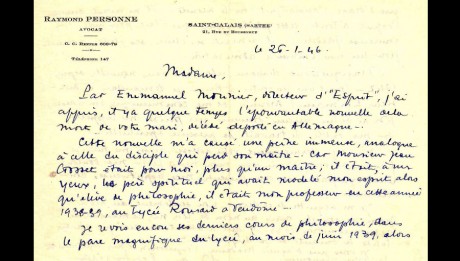 RAYMOND PERSONNE
AVOCAT
C. C. RENNES 600-79
TÉLÉPHONE 147
SAINT-CALAIS (SARTHE)
21, RUE DU
le 26-1-46.
Madame,
Par Emmanuel Mounier, directeur d'"Esprit", j'ai
appris, il y a quelque temps l'épouvantable nouvelle de la
mort de votre mari, décédé déporté en Allemagne -
Cette nouvelle m'a causé une peine immense, analogue
à celle du disciple qui perd son maître - Car Monsieur Jean
était pour moi, plus qu'un maître, il était, à mes
yeux, le père spirituel qui avait modelé mon esprit alors
qu'élève de philosophie, il était mon professeur en cette année
1938-39, au Lycée Ronsard à Vendôme -
Je revois encore ses derniers cours de philosophie, dans
le parc magnifique du lycée, au mois de juin 1939, alors